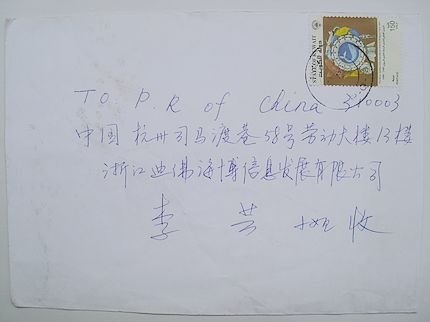 STATE OF KUWAIT
150
TO P.R of China 310003
中国 杭州司马渡巷58号劳动大楼13楼
浙江迪佛海博信息发展有限公司
李 芸 收